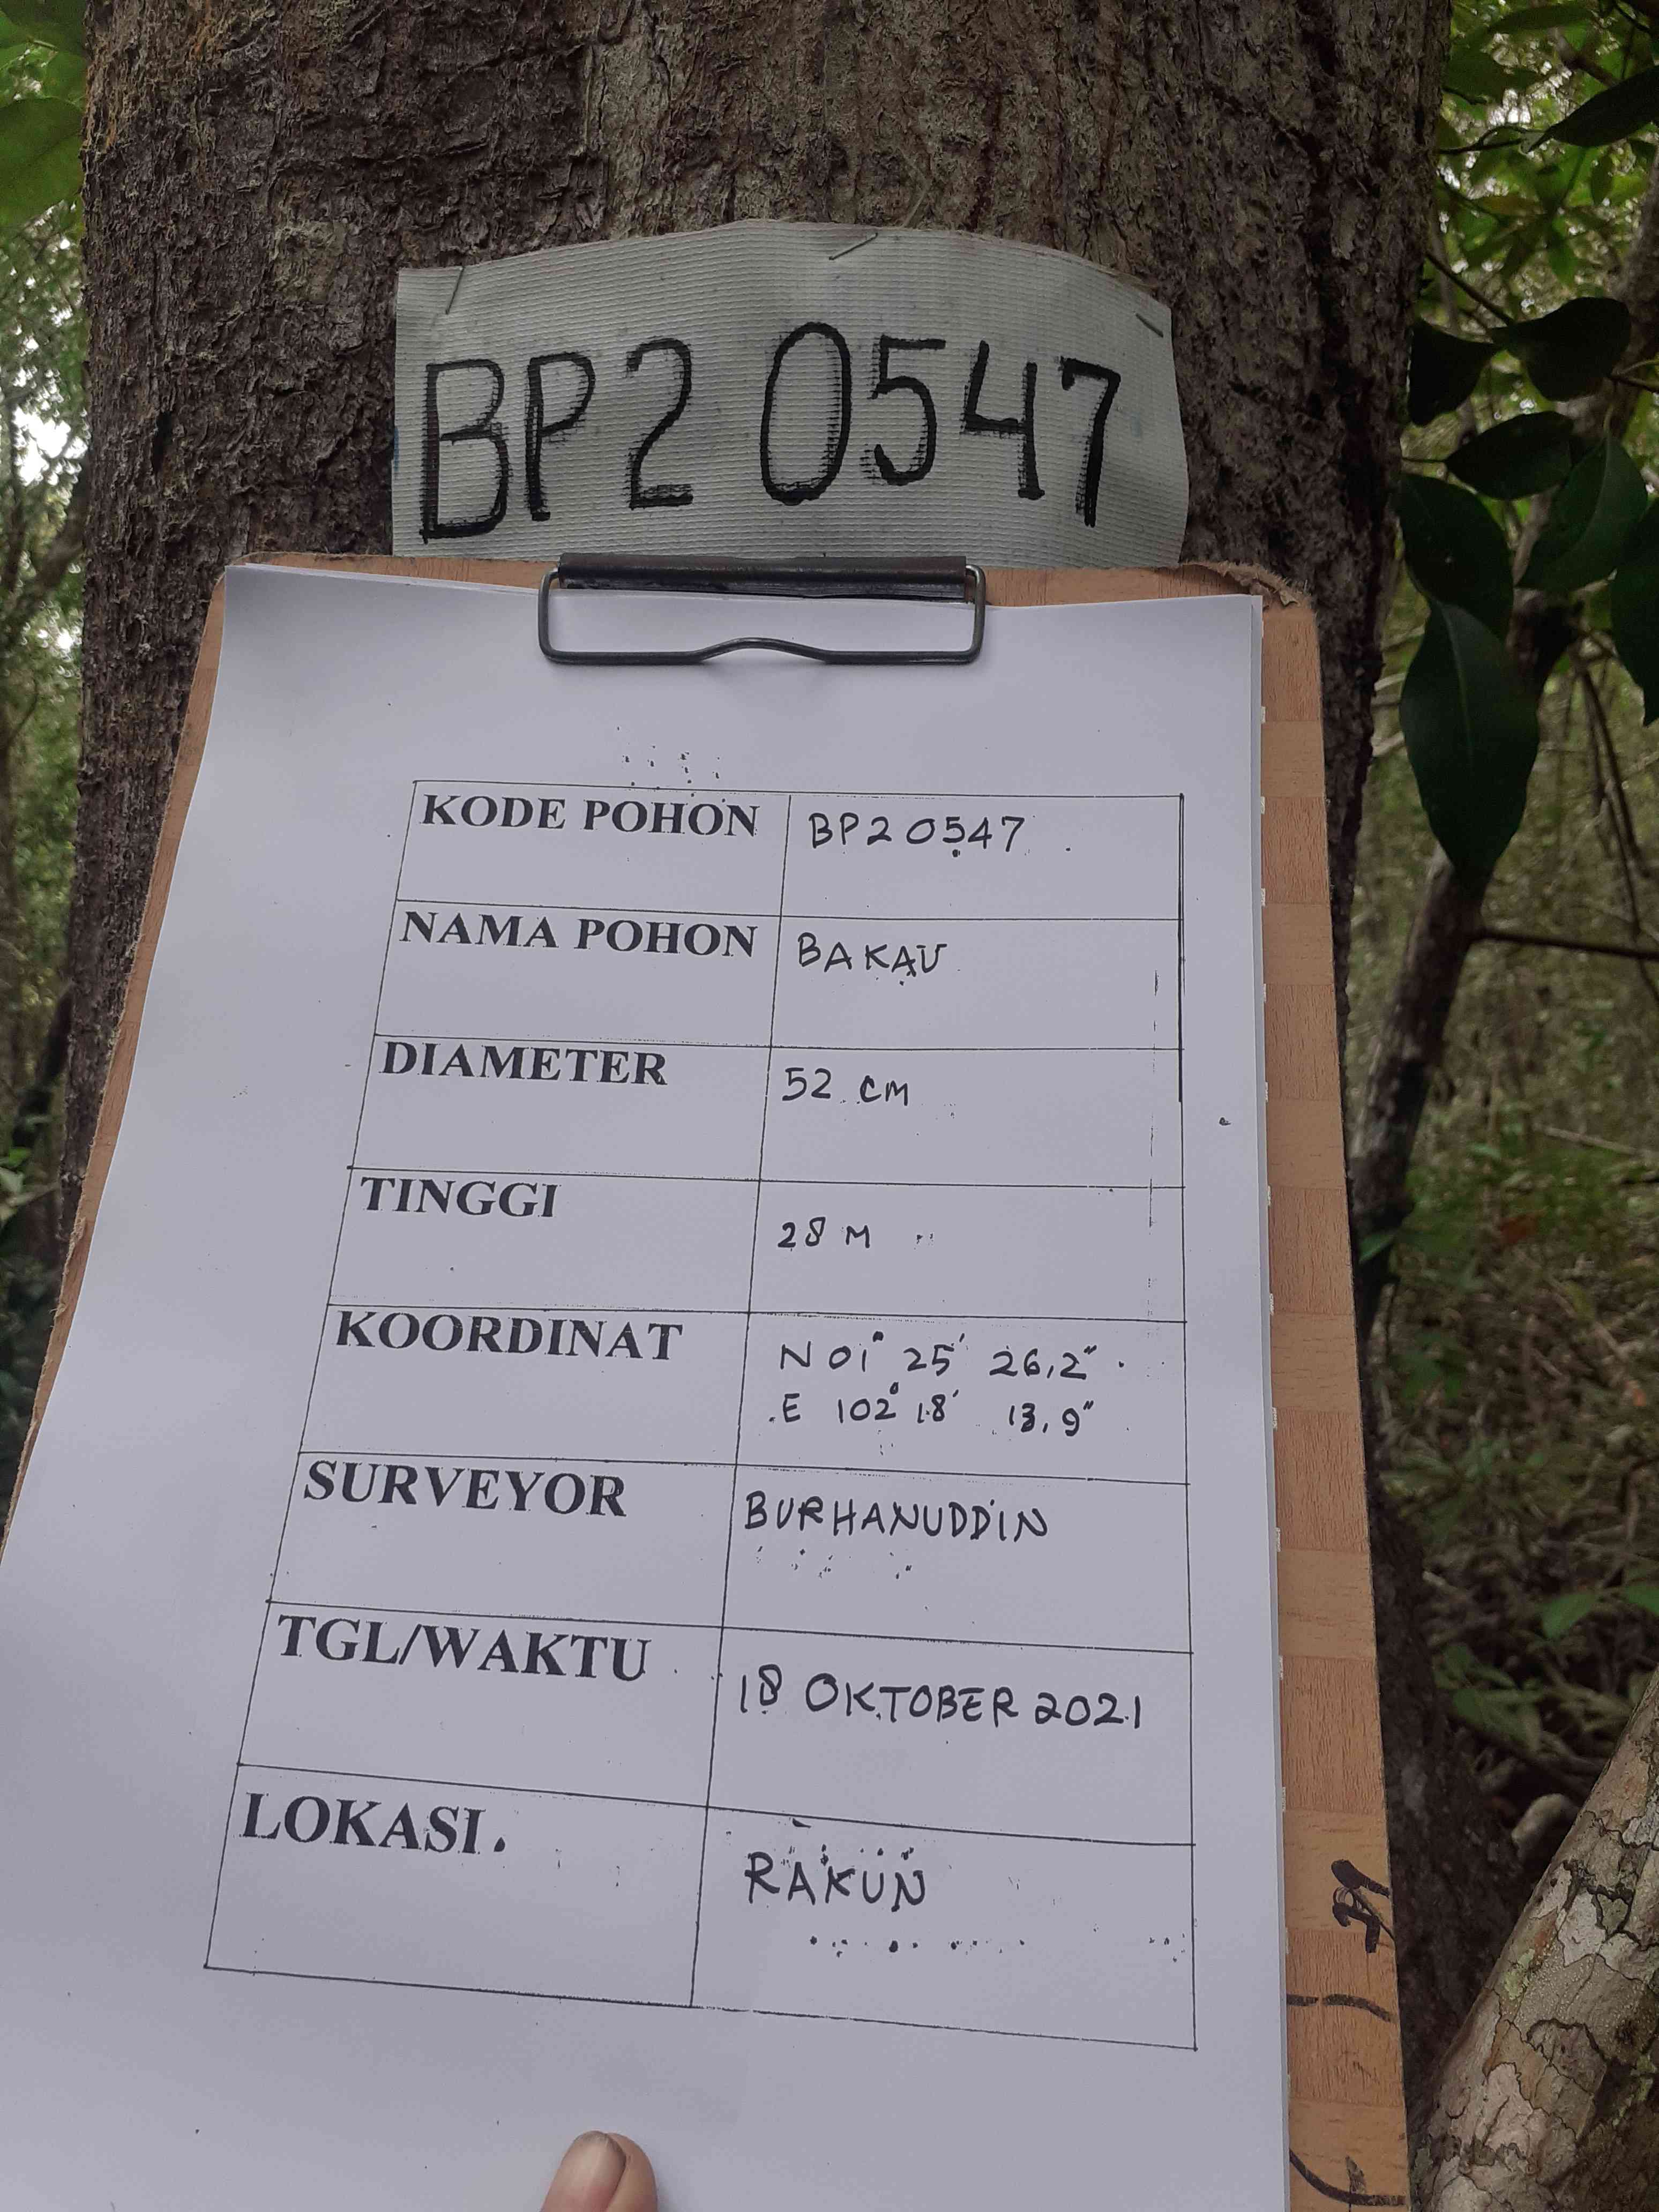 BP2 0547
KODE POHON BP2 0547
NAMA POHON BAKAU
DIAMETER 52 CM
TINGGI 28 M
KOORDINAT N 01° 25' 26,2"
E 102° 18' 13,9"
SURVEYOR BURHANUDDIN
TGL/WAKTU 18 OKTOBER 2021
LOKASI. RAKUN